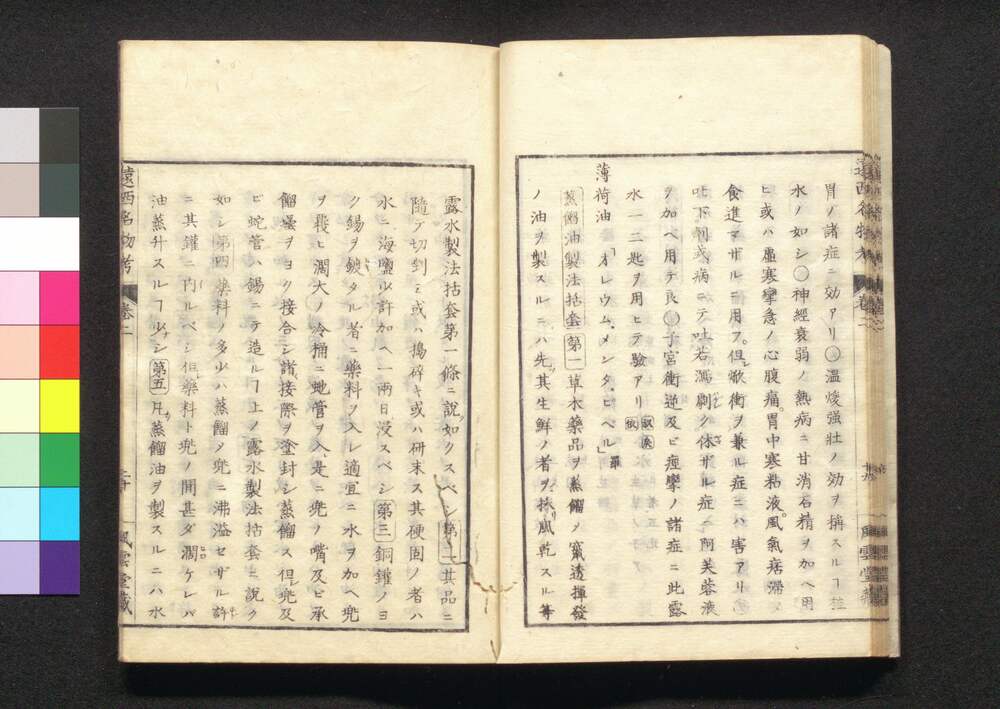 胃ノ諸症ニ効アリ○温煖強壮ノ効ヲ稱スルヿ桂
水ノ如シ○神經衰弱ノ熱病ニ甘消石精ヲ加ヘ用
ヒ或ハ虚寒攣急ノ心腹痛胃中寒粘液風氣痞滞シ
食進マザルニ用フ但焮衝ヲ兼ル症ニハ害アリ○
吐下劑或病ニテ吐若瀉劇ク休ザル症ニ阿芙蓉液
ヲ加ヘ用テ良○子宮衝逆及ビ痙攣ノ諸症ニ此露
水一二匙ヲ用ヒテ驗アリ
薄荷油「オレウム、メンタ、ピペル」羅
蒸餾油製法括套第一草木藥品ヲ蒸餾シ竄透揮發
ノ油ヲ製スルニハ先其生鮮ノ者ヲ扶風乾スル等
露水製法括套第一條ニ説如クスベシ第二其品ニ
隨テ切剉ミ或ハ搗碎キ或ハ研末ス其硬固ノ者ハ
水ニ海鹽少許加ヘ一兩日浸スベシ第三銅鑵ノヨ
ク錫ヲ鍍タル者ニ藥料ヲ入レ適宜ニ水ヲ加ヘ兜
ヲ覆ヒ濶大ノ冷桶ニ虵管ヲ入是ニ兜ノ嘴及ビ承
餾罍ヲヨク接合シ諸接際ヲ塗封シ蒸餾ス但兜及
ビ蛇管ハ錫ニテ造ルヿ上ノ露水製法括套ニ説ク
如シ第四藥料ノ多少ハ蒸餾シ兜ニ沸溢セザル許
ニ其鑵ニ内ルベシ但藥料ト兜ノ間甚ダ濶ケレバ
油蒸升スルヿ少シ第五凡蒸餾油ヲ製スルニハ水
遠西名物考 卷二
風雲堂藏